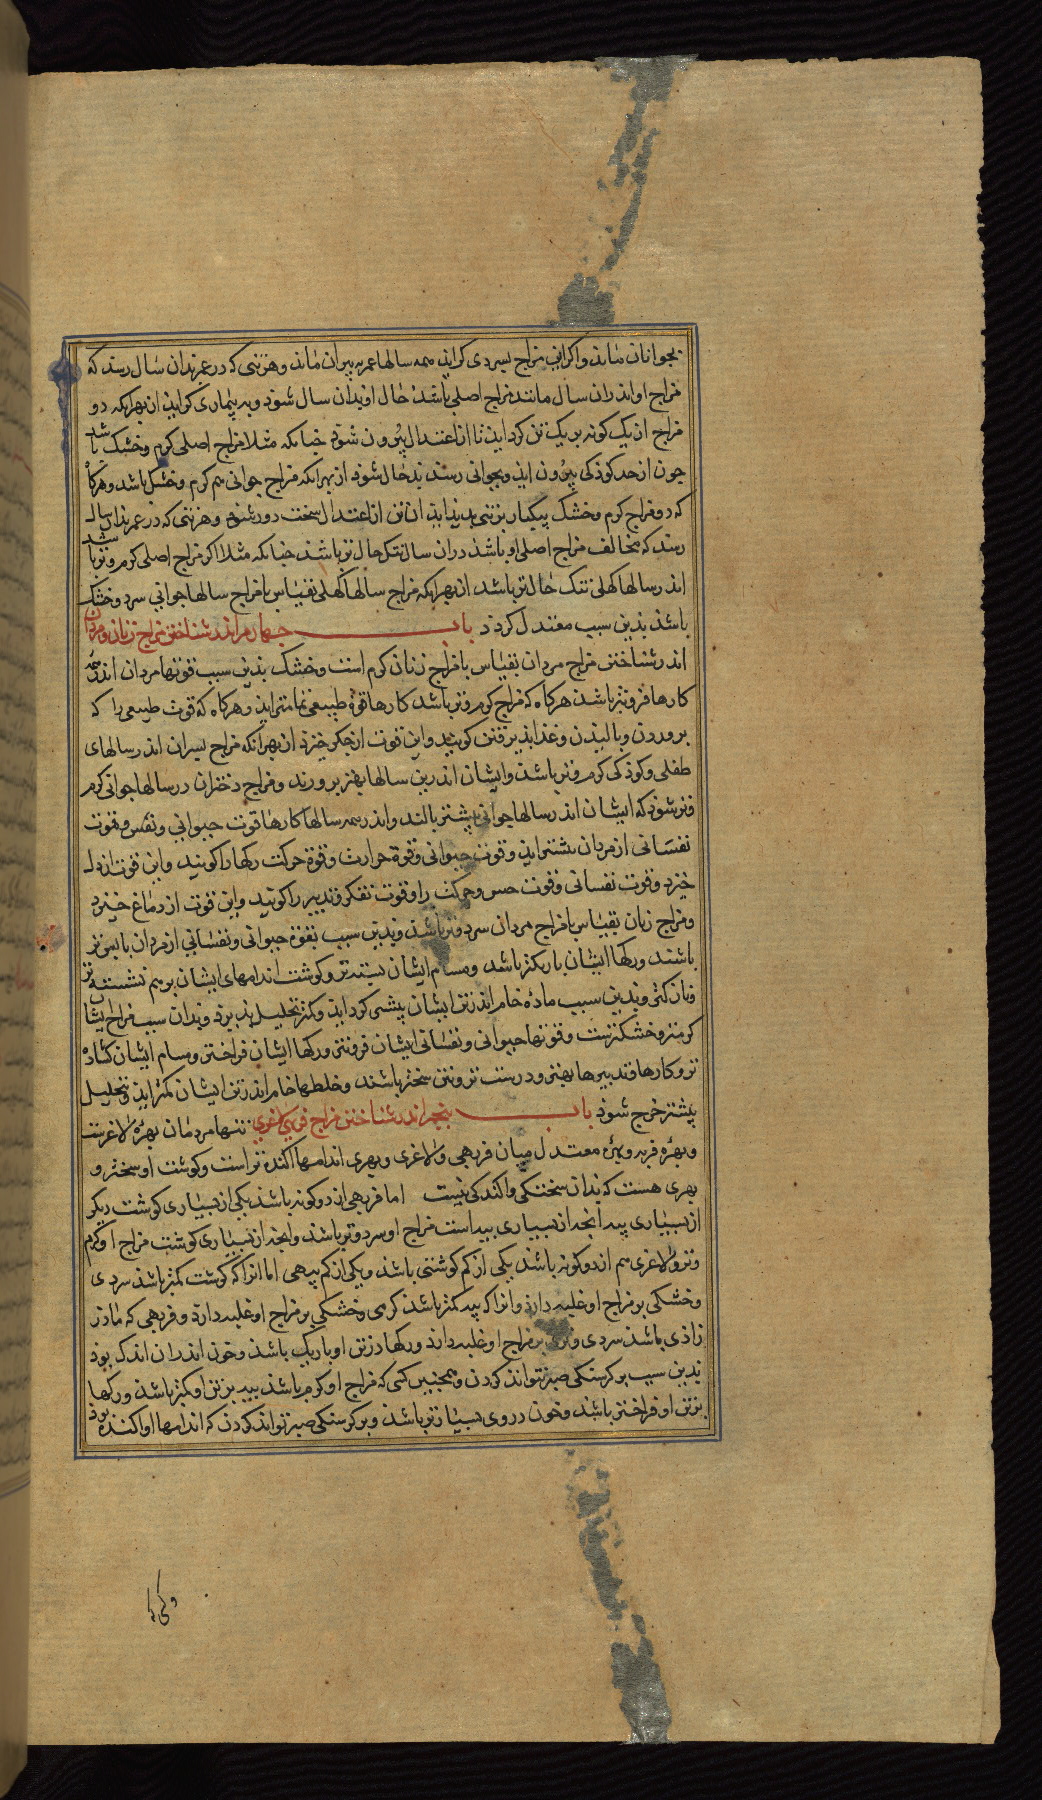 بجوانان ماند واگر این مزاج بسردی گراید همه سالها عمر به پیران ماند و هر تنی که در عمر بدان سال رسد که
مزاج او اندران سال مانند مزاج اصلی باشد حال او بدان سال شود و به بیماری گراید از بهر آنکه دو
مزاج از یک گونه بر یک تن گرد آید تا از اعتدال بیرون شود چنانکه مثلا مزاج اصلی گرم و خشک باشد
چون از حد کودکی بیرون آید و بجوانی رسد بدحال شود از بهر آنکه مزاج جوانی هم گرم و خشک باشد و هرگاه
که دو مزاج گرم و خشک بیکبار بر تنی پدید آید آن تن از اعتدال سخت دور شود و هر تنی که در عمر بدان سال
رسد که مخالف مزاج اصلی او باشد در آن سال نیک حال تر باشد چنانکه مثلا اگر مزاج اصلی گرم و تر باشد
اندر سالها کهلی نیک حال تر باشد از بهر آنکه مزاج سالها کهلی بقیاس با مزاج سالها جوانی سرد و خشک
باشد بدین سبب معتدل گردد باب چهارم اندر شناختن مزاج زنان و مردان
اندر شناختن مزاج مردان بقیاس با مزاج زنان گرم است و خشک بدین سبب قوتها مردان اندر همه
کارها فزونتر باشد هرگاه که مزاج گرم و تر باشد کارها قوة طبیعی تمامتر آید و هرگاه که قوت طبیعی را که
پروردن و بالیدن و غذا پذیرفتن گویند و این قوت از جگر خیزد از بهر آنکه مزاج پسران اندر سالهای
طفلی و کودکی گرم و تر باشد و ایشان اندرین سالها بهتر پرورند و مزاج دختران در سالها جوانی گرم
و تر شود که ایشان اندر سالها جوانی بیشتر بالند و اندر همه سالها کارها قوت حیوانی و نفس و قوت
نفسانی از مردان بیشتر آید و قوت حیوانی و قوة حرارت و قوة حرکت رگها را گویند و این قوت از دل
خیزد و قوت نفسانی و قوت حس و حرکت را و قوت تفکر و تدبیر را گویند و این قوت از دماغ خیزد
و مزاج زنان بقیاس با مزاج مردان سرد و تر باشد و بدین سبب بقوة حیوانی و نفسانی از مردان باپس تر
باشند و رگها ایشان باریکتر باشد و مسام ایشان بسته تر و گوشت اندامهای ایشان برهم نشسته تر
و بدین سبب ماده خام اندر تن ایشان بیشتر گرد آید و کمتر تحلیل پذیرد و بدان سبب مزاج ایشان
گرمتر و خشکترست و قوتها حیوانی و نفسانی ایشان فزونتر و رگها ایشان فراختر و مسام ایشان گشاده
تر و کارها و تدبیرها بهتر و درست تر و تن سختر باشند و خلطها خام اندر تن ایشان کمتر آید و تحلیل
بیشتر خرج شود باب پنجم اندر شناختن مزاج فربهی و لاغری تنها مردمان بهره لاغرست
و بهره فربه و بهره معتدل میان فربهی و لاغری و بهری اندامها آکنده تر است و گوشت او سختر و
بهری هست که بدان سختگی و آکندگی نیست اما فربهی از دو گونه باشد یکی از بسیاری گوشت دیگر
از بسیاری پیه آنچه از بسیاری پیه است مزاج او سرد و تر باشد و آنچه از بسیاری گوشت مزاج او گرم
و تر و لاغری هم از دو گونه باشد یکی از کم گوشتی باشد و یکی از کم پیهی اما آنرا که گوشت کمتر باشد سردی
و خشکی بر مزاج او غلبه دارد و آنرا که پیه کمتر باشد گرمی و خشکی بر مزاج او غلبه دارد و فربهی که مادر
زادی باشد سردی و تری بر مزاج او غلبه دارد و رگها در تن او باریک باشد و خون اندران اندک بود
بدین سبب بر گرسنگی صبر نتواند کردن و همچنین کسی که مزاج او گرم باشد پیه بر تن او کمتر باشد و رگها
بر تن او فراختر باشد و خون در وی بسیارتر باشد و بر گرسنگی صبر تواند کردن که اندامها او آکنده بود